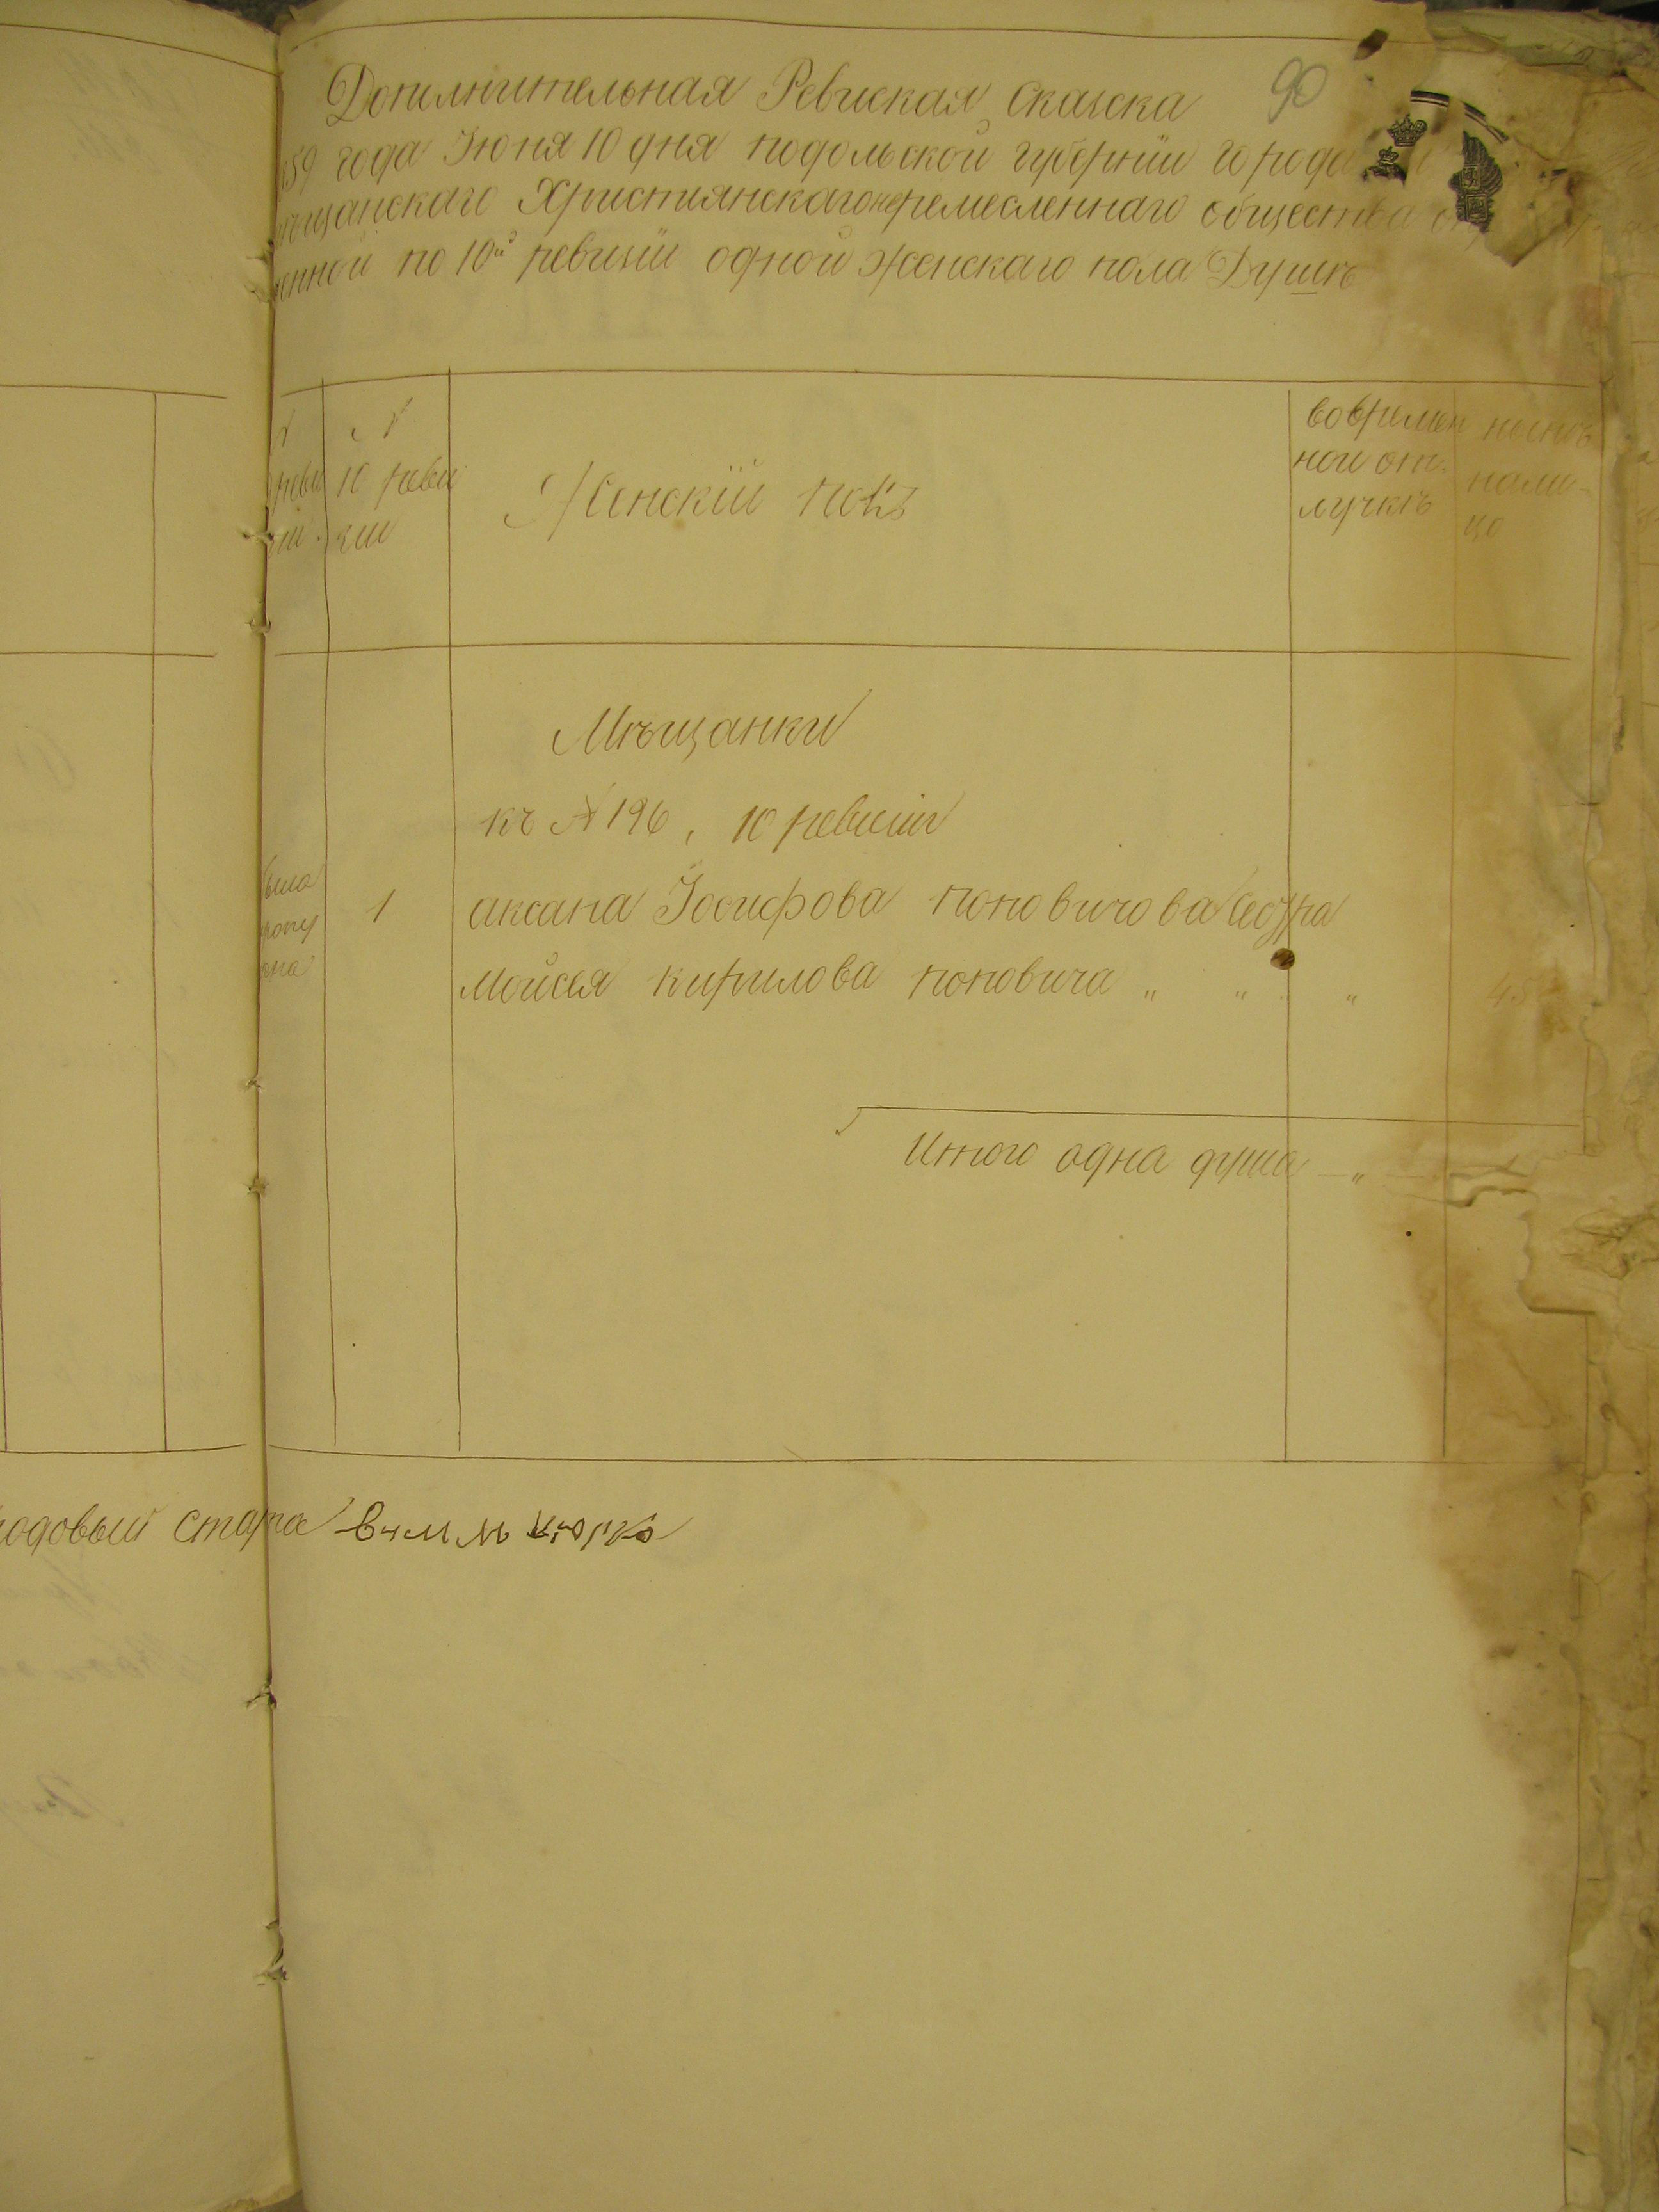 Дополнительная Ревиская Сказска 90
859 года Июня 10 дня подольской губерніи города
мѣщанскаго Християнскаго неремесленнаго общества о
енной по 10й ревизіи одной женскаго пола Душѣ
№ реви зіи
№ 10 реви зіи
Женскій полъ
во времен
ной от
лучкѣ
нынѣ
нали-
цо
Мѣщанки
къ № 196, 10 ревизіи
была
пропу
щена
1 аксана Іосифова поповичова Сестра
Мойсея кирилова поповича " " " 45
Итого одна душа — "
одовый стара